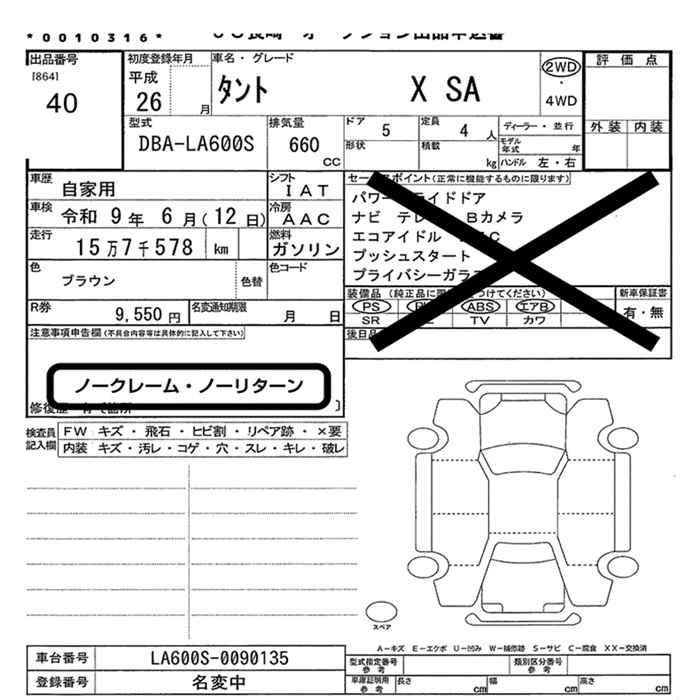 *0010316*
出品番号
[864]
40
初度登録年月
平成
26 月
車名・グレード
タント X SA
2WD
・
4WD
評価点
外装 内装
型式
DBA-LA600S
排気量
660
CC
ドア 5
形状
定員 4 人
積載 kg
ディーラー・並行
モデル年式 年
ハンドル 左・右
車歴 自家用
シフト
IAT
車検 令和 9年 6月(12日)
冷房
AAC
走行 15万7千578 km
燃料
ガソリン
色 ブラウン
色替
色コード
R券 9,550円
名変通知期限 月 日
注意事項申告欄(不具合内容等は具体的に記入して下さい)
ノークレーム・ノーリターン
修復歴
セールスポイント(正常に機能するものに限ります)
ナビ
Bカメラ
エコアイドル
プッシュスタート
プライバシーガラス
装備品
PS ABS エアB
SR TV カワ
新車保証書
有・無
後日品
検査員
記入欄
FW キズ・飛石・ヒビ割・リペア跡・×要
内装 キズ・汚レ・コゲ・穴・スレ・キレ・破レ
スペア
A-キズ E-エクボ U-凹み W-補修跡 S-サビ C-腐食 XX-交換済
車台番号 LA600S-0090135
登録番号 名変中
型式指定番号
参考
類別区分番号
参考
車庫証明用
参考
長さ cm 幅 cm 高さ cm